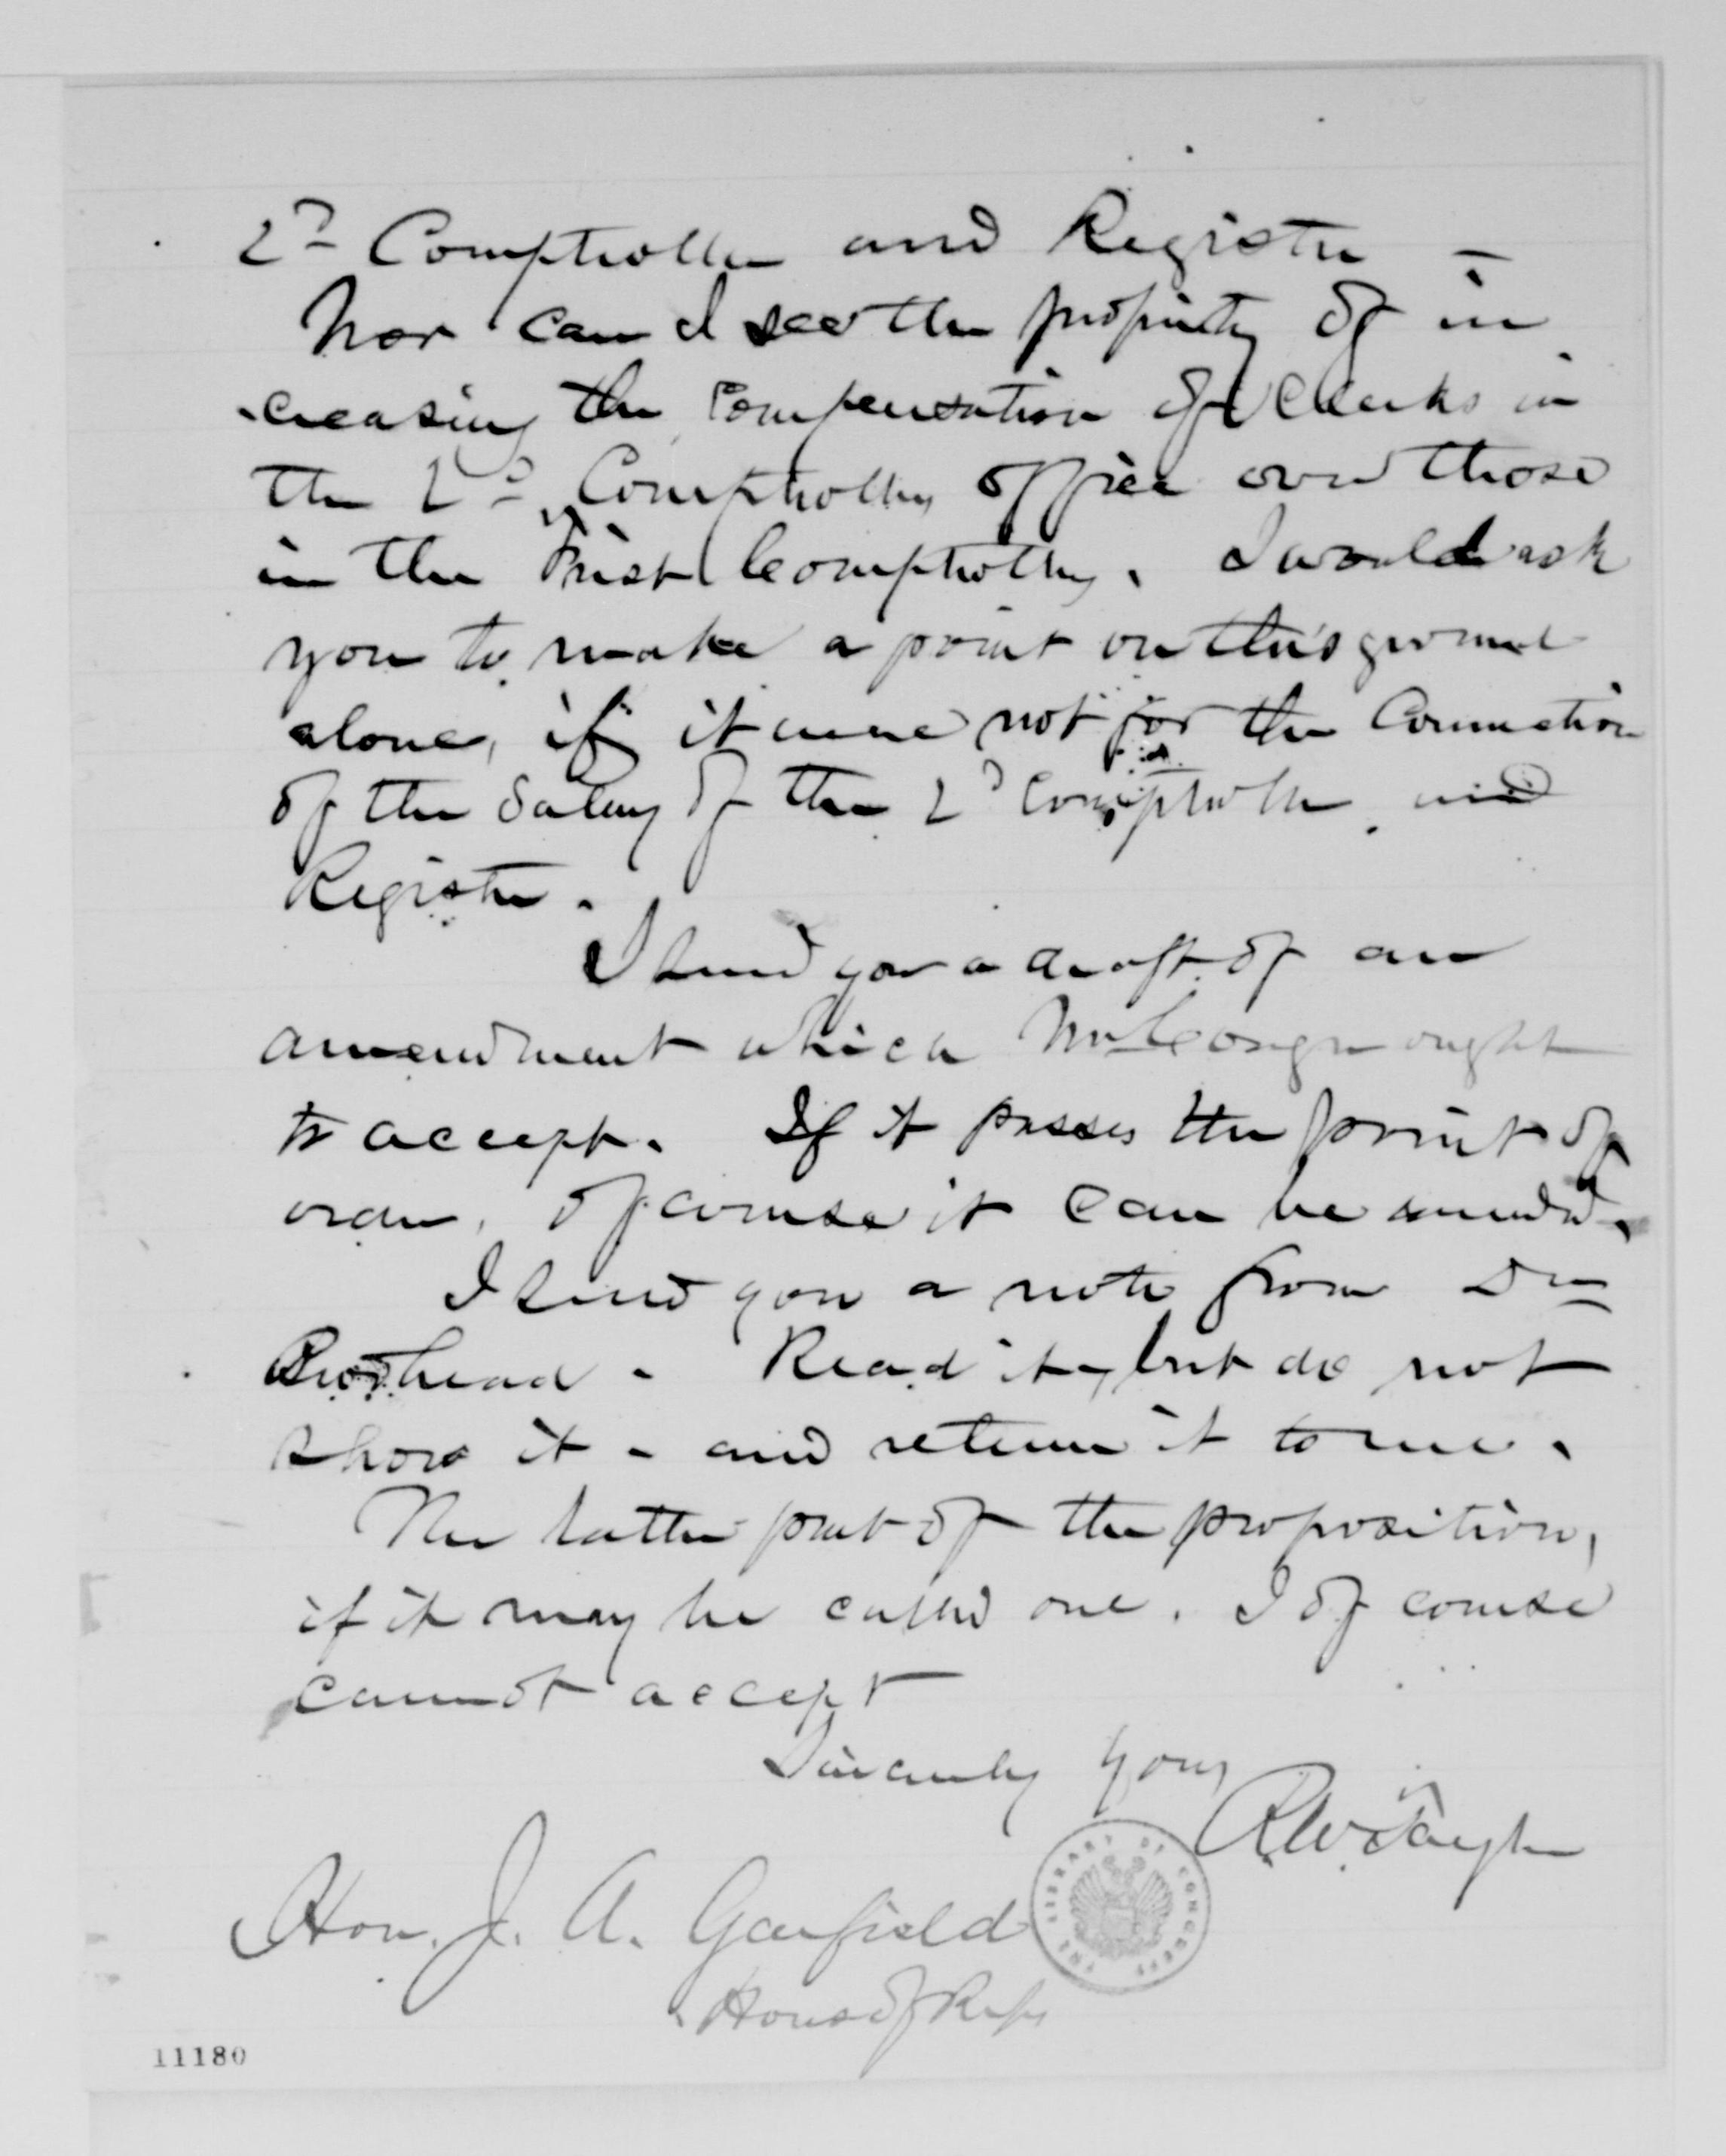 2d Comptroller and Register —
Nor can I see the propriety of in
-creasing the Compensation of Clerks in
the 2d Comptrollers office over those
in the First Comptrollers. I would ask
you to make a point on this ground
alone, if it were not for the Connection
of the Salary of the 2d Comptroller and
Register.
I send you a draft of an
amendment which Mr Conger ought
to accept. If it passes the point of
order, of course it can be amended.
I send you a note from Dr
Brodhead. Read it, but do not
show it - and return it to me.
The latter part of the proposition,
if it may be called one, I of course
cannot accept
Sincerely Yours
R. W. Tayler
Hon. J. A. Garfield
House of Reps
THE LIBRARY OF CONGRESS
11180